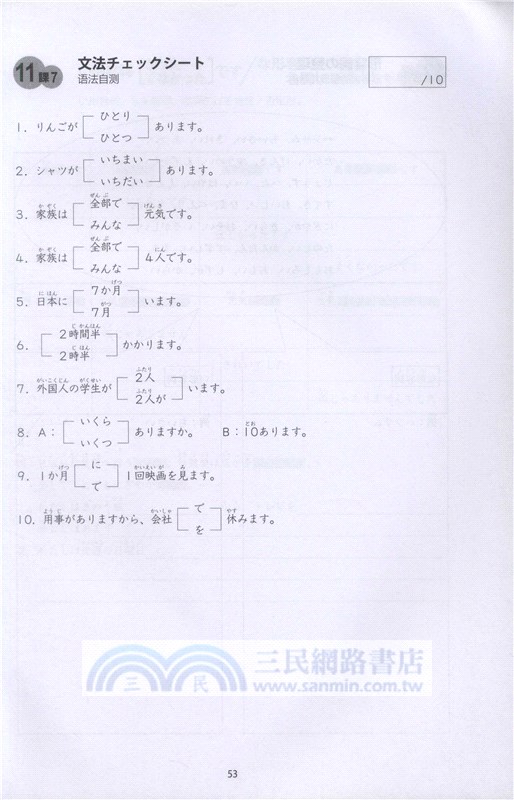 11課7
文法チェックシート
语法自测
/10
1. りんごが[ひとり
ひとつ]あります。
2. シャツが[いちまい
いちだい]あります。
3. 家族は[全部で
みんな]元気です。
4. 家族は[全部で
みんな]4人です。
5. 日本に[7か月
7月]います。
6. [2時間半
2時半]かかります。
7. 外国人の学生が[2人
2人が]います。
8. A:[いくら
いくつ]ありますか。 B:10あります。
9. 1か月[に
で]1回映画を見ます。
10. 用事がありますから、会社[で
を]休みます。
三民網路書店
三 民
www.sanmin.com.tw
53